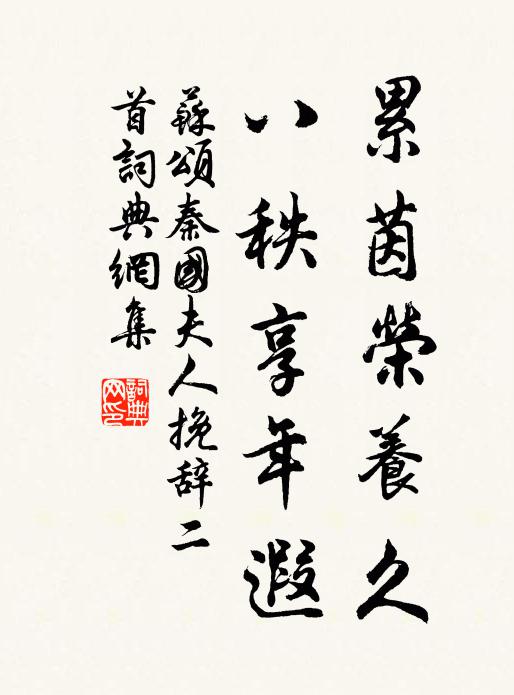 累茵榮養久
八秩享年遐
蘇頌秦國夫人挽辞二
首詞典網集
詞典
网印